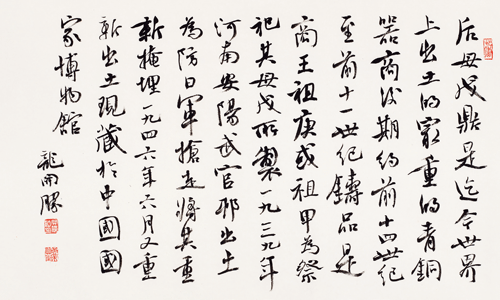 后母戊鼎是迄今世界
上出土的最重的青銅
器商後期約前十四世紀
至前十一世紀鑄品是
商王祖庚或祖甲為祭
祀其母戊所製一九三九年
河南安陽武官邨出土
為防日軍搶走將其重
新掩埋一九四六年六月又重
新出土現藏於中國國
家博物館
龍開勝